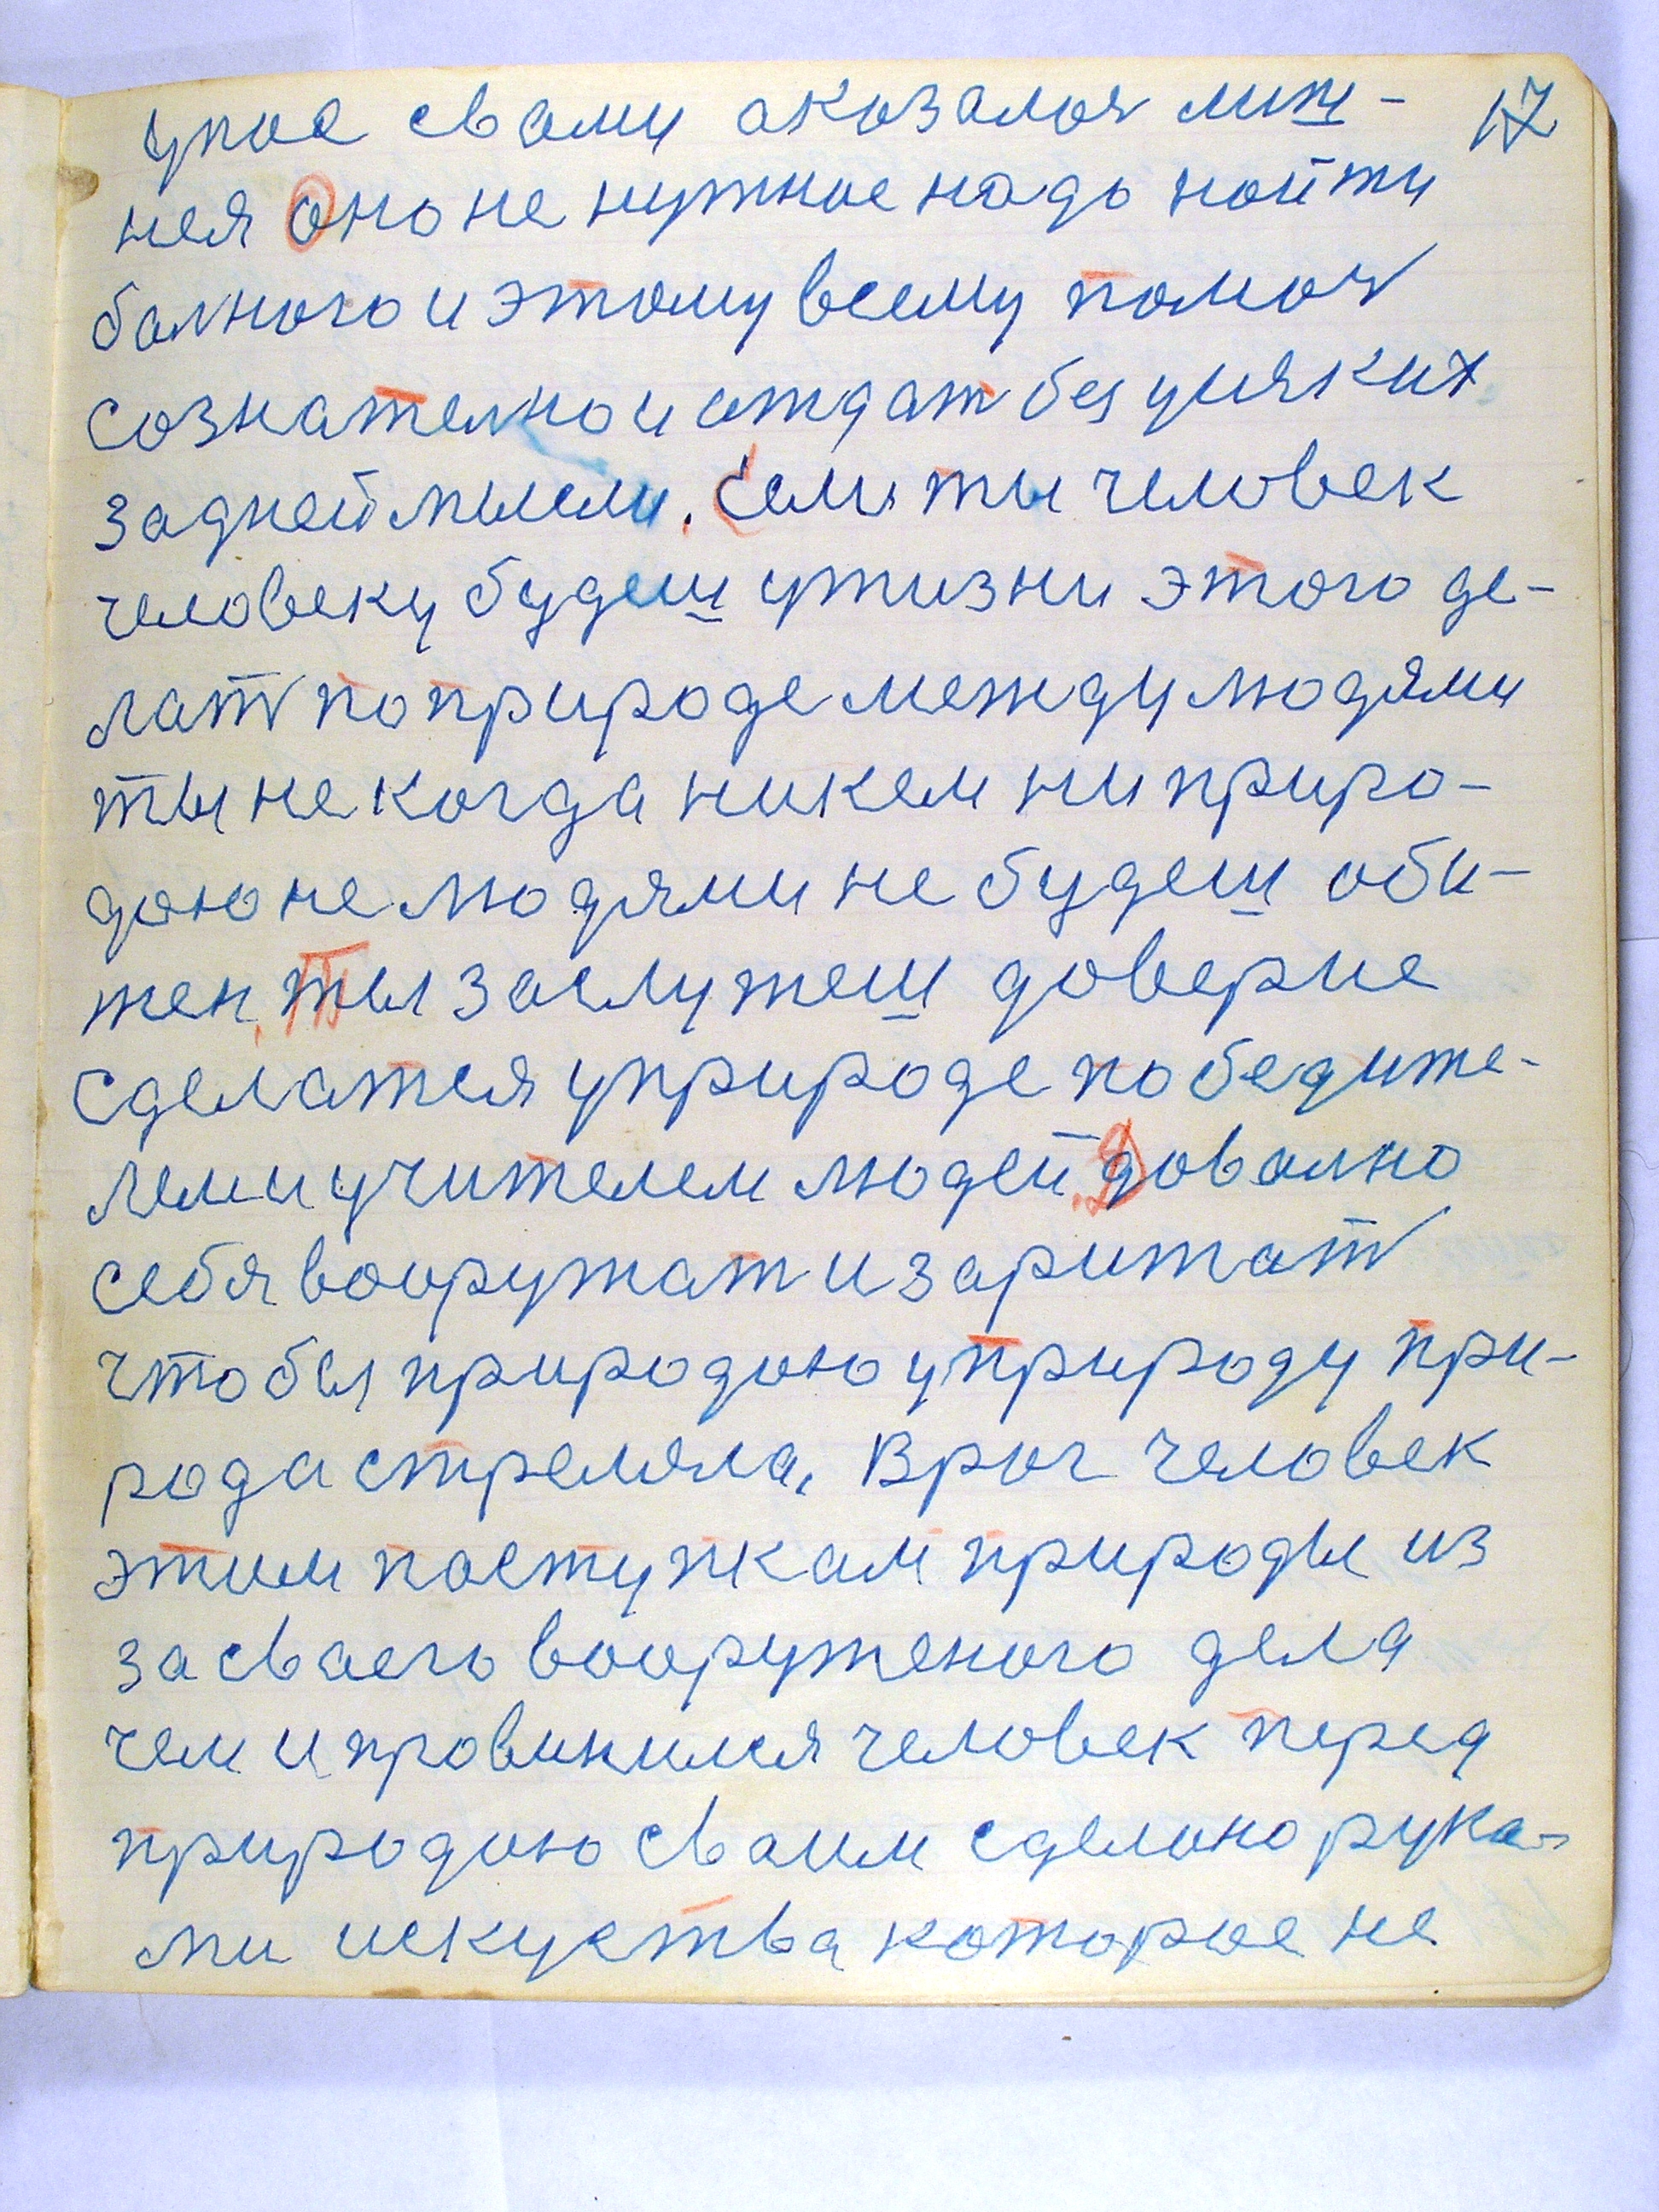 17
упос свами аказалося лиш-
ния оно не нужное надо найти
балного и этому всему помоч
сознателно и отдат без у усяких
задней мысли. Если ты человек
человеку будеш ужизни этого де-
лат по природе между людями
ты не когда никем ни приро-
дою не людями не будеш оби-
жен. Ты заслужеш доверие
сделатся уприроде победите-
лем и учителем людей. Доволно
себя вооружат и заритат
чтобы природою уприроду при-
рода стреляла. Врач человек
этим поступкам природы из
за сваего вооруженого дела
чем и провинился человек перед
природою сваим сделано рука-
ми искуства которое не